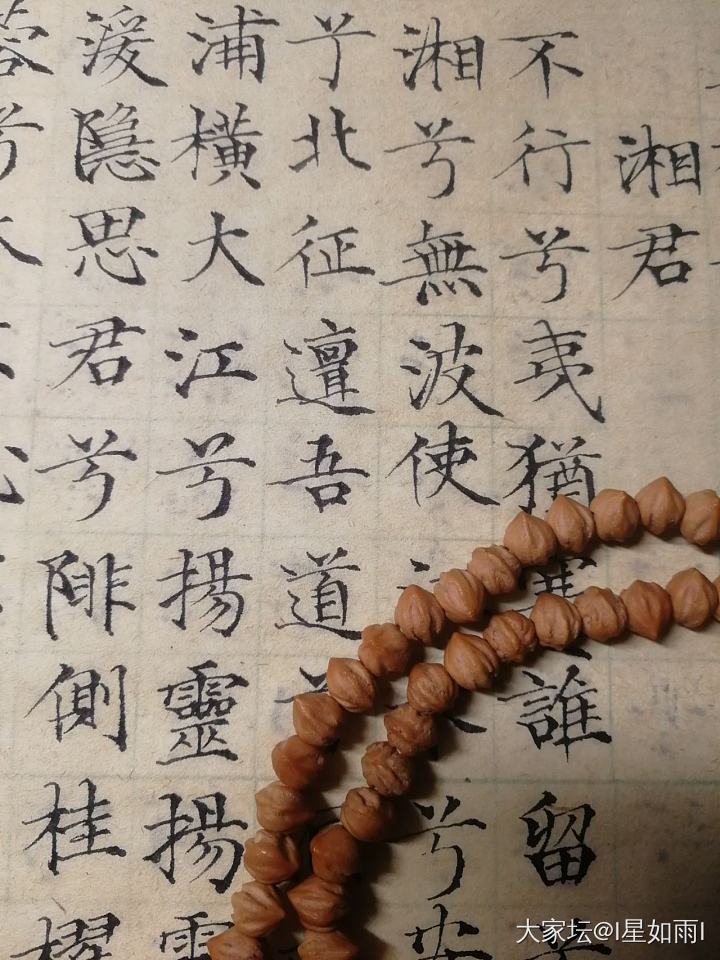 湘君
不行兮夷猶誰留
湘兮無波使兮安
兮北征邅吾道
浦橫大江兮揚靈揚靈
湲隱思君兮陫側桂櫂
大家坛@I星如雨I